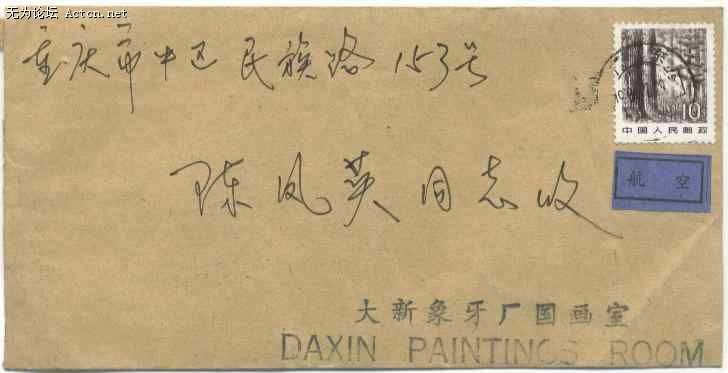 无为论坛 Actcn.net
重庆市中区民族路153号
10
中国人民邮政
航空
陈凤英同志收
大新象牙厂国画室
DAXIN PAINTINGS ROOM